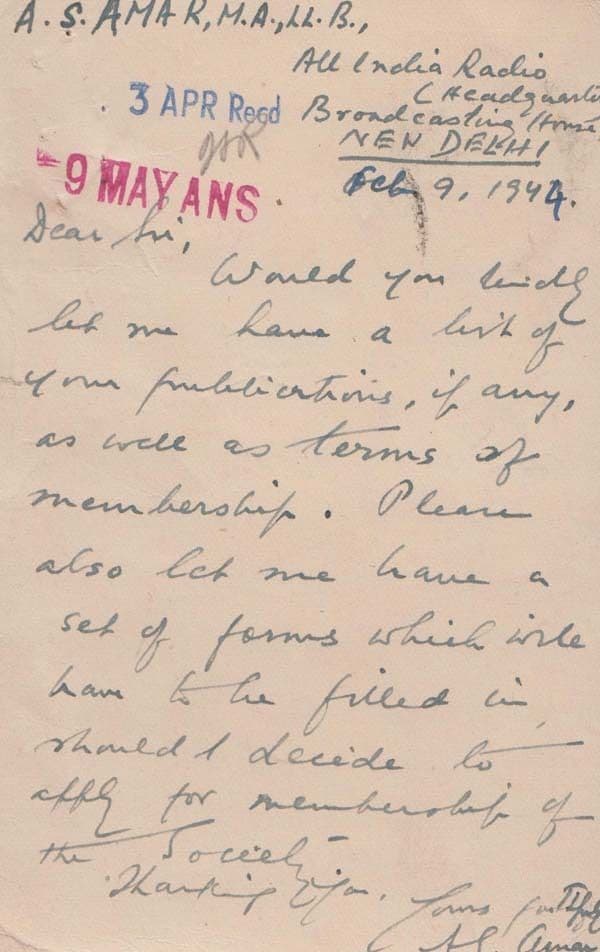 A. S. AMAR, M.A., LL. B.,
All India Radio
(Headquarte
3 APR Recd
Broadcasting House
NEW DELHI
- 9 MAY ANS.
Feb 9, 1944.
Dear Sir,
Would you kindly
let me have a list of
your publications, if any,
as well as terms of
membership. Please
also let me have a
set of forms which will
have to be filled in
should I decide to
apply for membership of
the Society.
Thanking you.
Yours faithfully
AS Amar